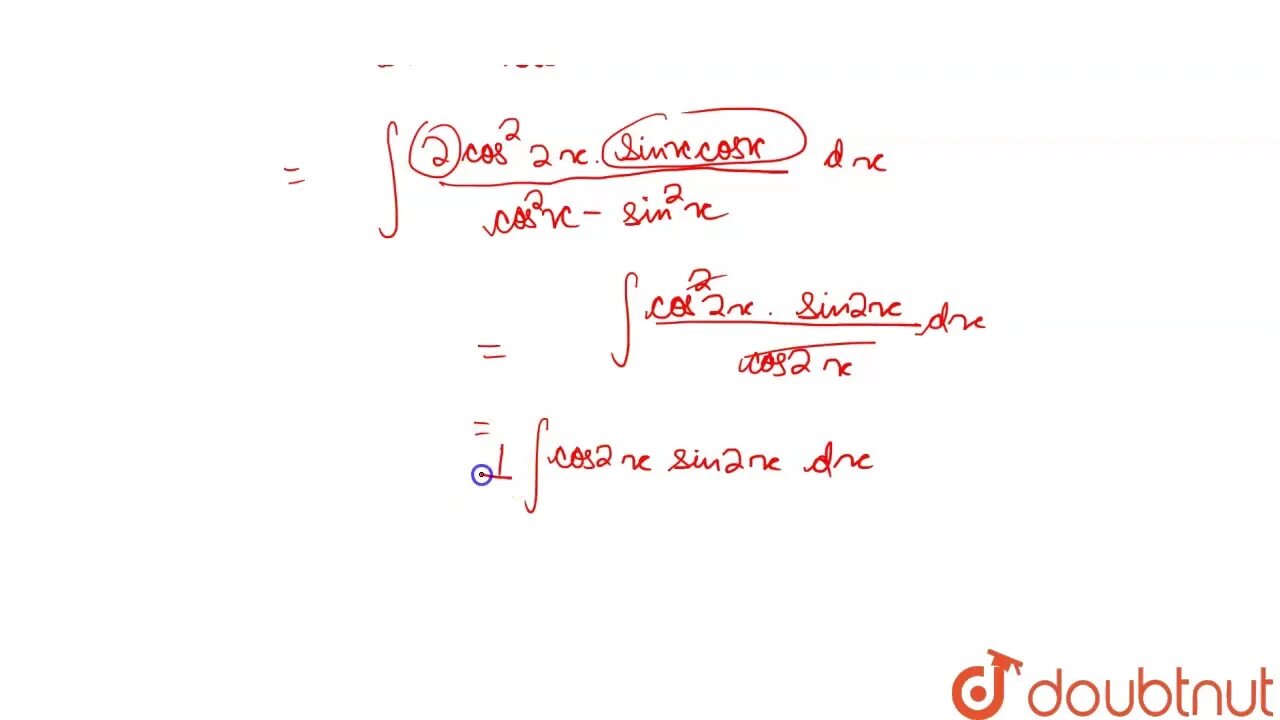 = ∫ 2cos² 2x. sinx cosx / cos²x - sin²x dx
= ∫ cos² 2x . sin2x / cos2x dx
= 1 ∫ cos2x sin2x dx
doubtnut